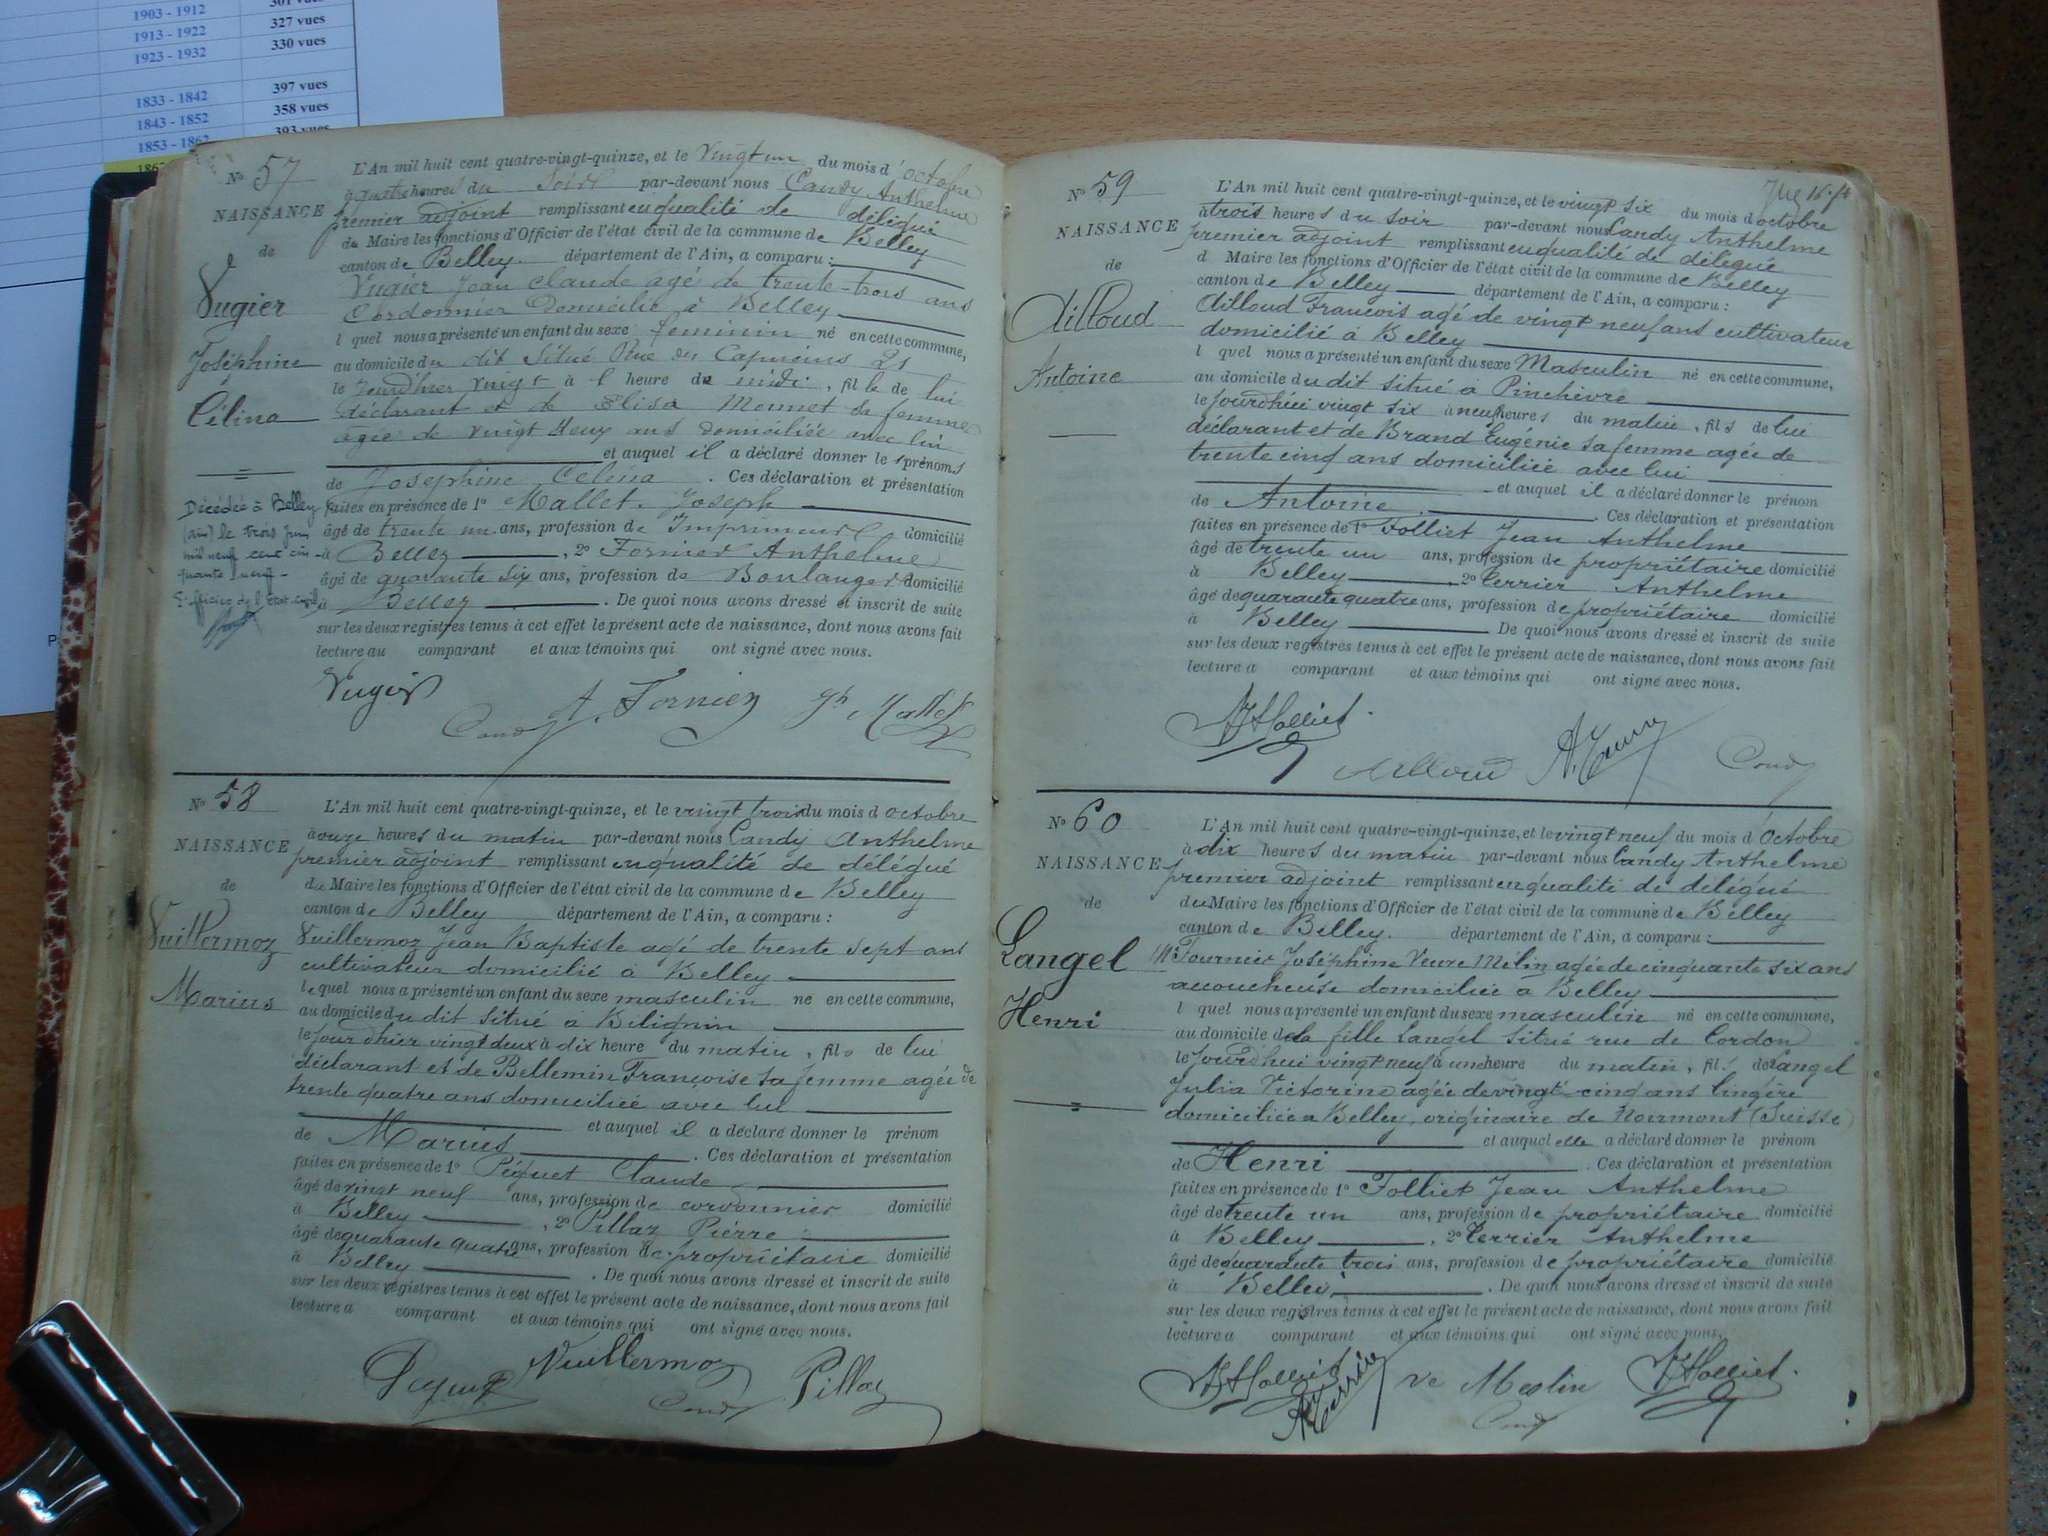 1903 - 1912 301 vues
1913 - 1922 327 vues
1923 - 1932 330 vues
1833 - 1842 397 vues
1843 - 1852 358 vues
1853 - 1862 393 vues
No 57
NAISSANCE
de
Vugier
Joséphine
Célina
Décédée à Belley
(ain) le trois juin
mil neuf cent cin-
quante neuf -
L'officier de l'état civil
L'An mil huit cent quatre-vingt-quinze, et le vingt un du mois d'octobre
à quatre heures du soir par-devant nous Candy Anthelme
premier adjoint remplissant en qualité de délégué
du Maire les fonctions d'Officier de l'état civil de la commune de Belley
canton de Belley département de l'Ain, a comparu :
Vugier Jean Claude agé de trente-trois ans
Cordonnier Domicilié à Belley
l quel nous a présenté un enfant du sexe feminin né en cette commune,
au domicile du dit Situé Rue des Capucins 21
le jourd'hier vingt à l heure de midi, fille de lui
déclarant et de Elisa Monnet sa femme
agée de vingt deux ans domiciliée avec lui
et auquel il a déclaré donner les prénoms
de Josephine Celina. Ces déclaration et présentation
faites en présence de 1o Mallet Joseph
âgé de trente un ans, profession de Imprimeur domicilié
à Belley, 2o Fornier Anthelme
âgé de quarante six ans, profession de Boulanger domicilié
à Belley. De quoi nous avons dressé et inscrit de suite
sur les deux registres tenus à cet effet le présent acte de naissance, dont nous avons fait
lecture au comparant et aux témoins qui ont signé avec nous.
Vugier A. Fornier Jh Mallet
Candy
No 58
NAISSANCE
de
Vuillermoz
Marius
L'An mil huit cent quatre-vingt-quinze, et le vingt trois du mois d octobre
à onze heures du matin par-devant nous Candy Anthelme
premier adjoint remplissant en qualité de délégué
du Maire les fonctions d'Officier de l'état civil de la commune de Belley
canton de Belley département de l'Ain, a comparu :
Vuillermoz Jean Baptiste agé de trente sept ans
cultivateur domicilié à Belley
lequel nous a présenté un enfant du sexe masculin né en cette commune,
au domicile du dit situé à Bilignin
le jourdhier vingt deux à dix heure du matin, fils de lui
déclarant et de Bellemin Françoise sa femme agée de
trente quatre ans domiciliée avec lui
et auquel il a déclaré donner le prénom
de Marius. Ces déclaration et présentation
faites en présence de 1o Péquet Claude
âgé de vingt neuf ans, profession de cordonnier domicilié
à Belley, 2o Pillaz Pierre
âgé de quarante quatre ans, profession de propriétaire domicilié
à Belley. De quoi nous avons dressé et inscrit de suite
sur les deux registres tenus à cet effet le présent acte de naissance, dont nous avons fait
lecture a comparant et aux témoins qui ont signé avec nous.
Pequet Vuillermoz Pillaz
Candy
No 59
NAISSANCE
de
Ailloud
Antoine
L'An mil huit cent quatre-vingt-quinze, et le vingt six du mois d octobre
à trois heures du soir par-devant nous Candy Anthelme
premier adjoint remplissant en qualité de délégué
d Maire les fonctions d'Officier de l'état civil de la commune de Belley
canton de Belley département de l'Ain, a comparu :
Ailloud François agé de vingt neuf ans cultivateur
domicilié à Belley
l quel nous a présenté un enfant du sexe Masculin né en cette commune,
au domicile du dit situé à Pinchèvre
le jourdhui vingt six à neuf heures du matin, fils de lui
déclarant et de Brand Eugénie sa femme agée de
trente cinq ans domiciliée avec lui
et auquel il a déclaré donner le prénom
de Antoine. Ces déclaration et présentation
faites en présence de 1o Folliet Jean Anthelme
âgé de trente un ans, profession de propriétaire domicilié
à Belley 2o Terrier Anthelme
âgé de quarante quatre ans, profession de propriétaire domicilié
à Belley De quoi nous avons dressé et inscrit de suite
sur les deux registres tenus à cet effet le présent acte de naissance, dont nous avons fait
lecture a comparant et aux témoins qui ont signé avec nous.
Folliet
Ailloud Candy
No 60
NAISSANCE
de
Langel
Henri
L'An mil huit cent quatre-vingt-quinze, et le vingt neuf du mois d'Octobre
à dix heures du matin par-devant nous Candy Anthelme
premier adjoint remplissant en qualité de délégué
du Maire les fonctions d'Officier de l'état civil de la commune de Belley
canton de Belley. département de l'Ain, a comparu :
Me Fournier Joséphine Veuve Mélin agée de cinquante six ans
accoucheuse domiciliée à Belley
l quel nous a présenté un enfant du sexe masculin né en cette commune,
au domicile de la fille Langel situé rue de Cordon
le jourdhui vingt neuf à une heure du matin, fils de Langel
Julia Victorine agée de vingt-cinq ans lingère
domiciliée à Belley, originaire de Noirmont (Suisse)
et auquel elle a déclaré donner le prénom
de Henri. Ces déclaration et présentation
faites en présence de 1o Folliet Jean Anthelme
âgé de trente un ans, profession de propriétaire domicilié
à Belley, 2o Terrier Anthelme
âgé de quarante trois ans, profession de propriétaire domicilié
à Belley. De quoi nous avons dressé et inscrit de suite
sur les deux registres tenus à cet effet le présent acte de naissance, dont nous avons fait
lecture a comparant et aux témoins qui ont signé avec nous.
Folliet Terrier Ve Meslin Folliet
Candy